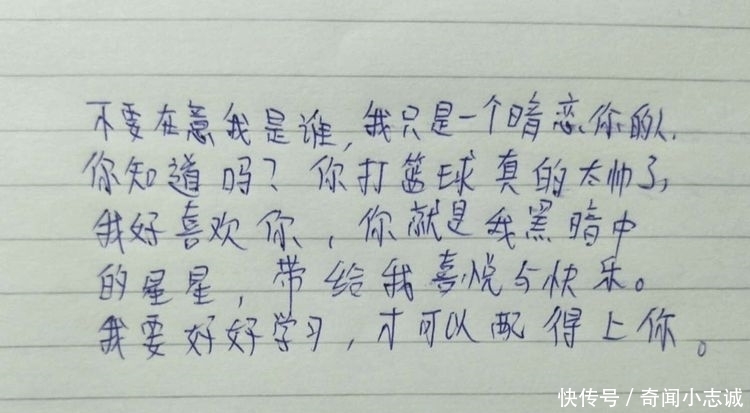 不要在意我是谁,我只是一个暗恋你的人.
你知道吗?你打篮球真的太帅了,
我好喜欢你,你就是我黑暗中
的星星,带给我喜悦与快乐。
我要好好学习,才可以配得上你。
快传号/奇闻小志诚